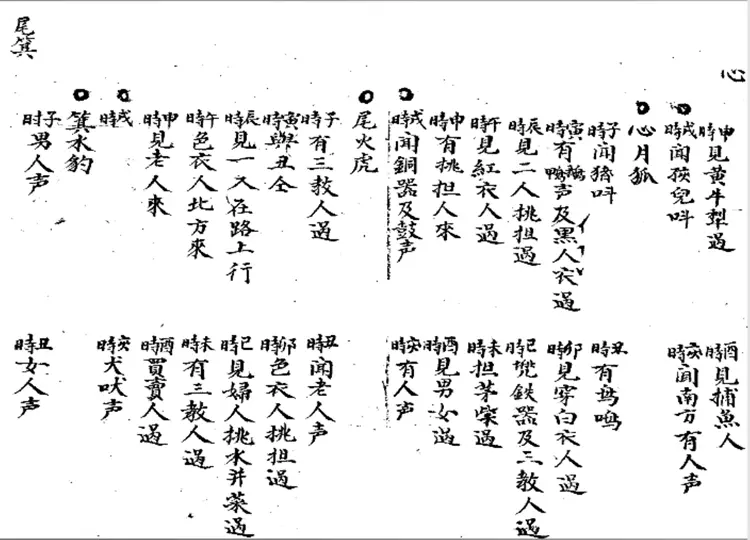 心
申時見黃牛犁過
酉時見捕魚人
戌時聞孩兒叫
亥時聞南方有人声
心月狐
子時聞猪叫
丑時有鸟鳴
寅時有鵝鴨声及黑人衣過
卯時見穿白衣人過
辰時見二人挑担過
巳時鉄器及三教人過
午時見紅衣人過
未時担茅柴過
申時有挑担人來
酉時見男女過
戌時聞銅器及鼓声
亥時有人声
尾火虎
子時有三教人過
丑時聞老人声
寅時與丑仝
卯時色衣人挑担過
辰時見一人在路上行
巳時見婦人挑水并菜過
午時色衣人北方來
未時有三教人過
申時見老人來
酉時買賣人過
戌時
亥時犬吠声
箕水豹
子时男人声
丑時女人声
尾箕